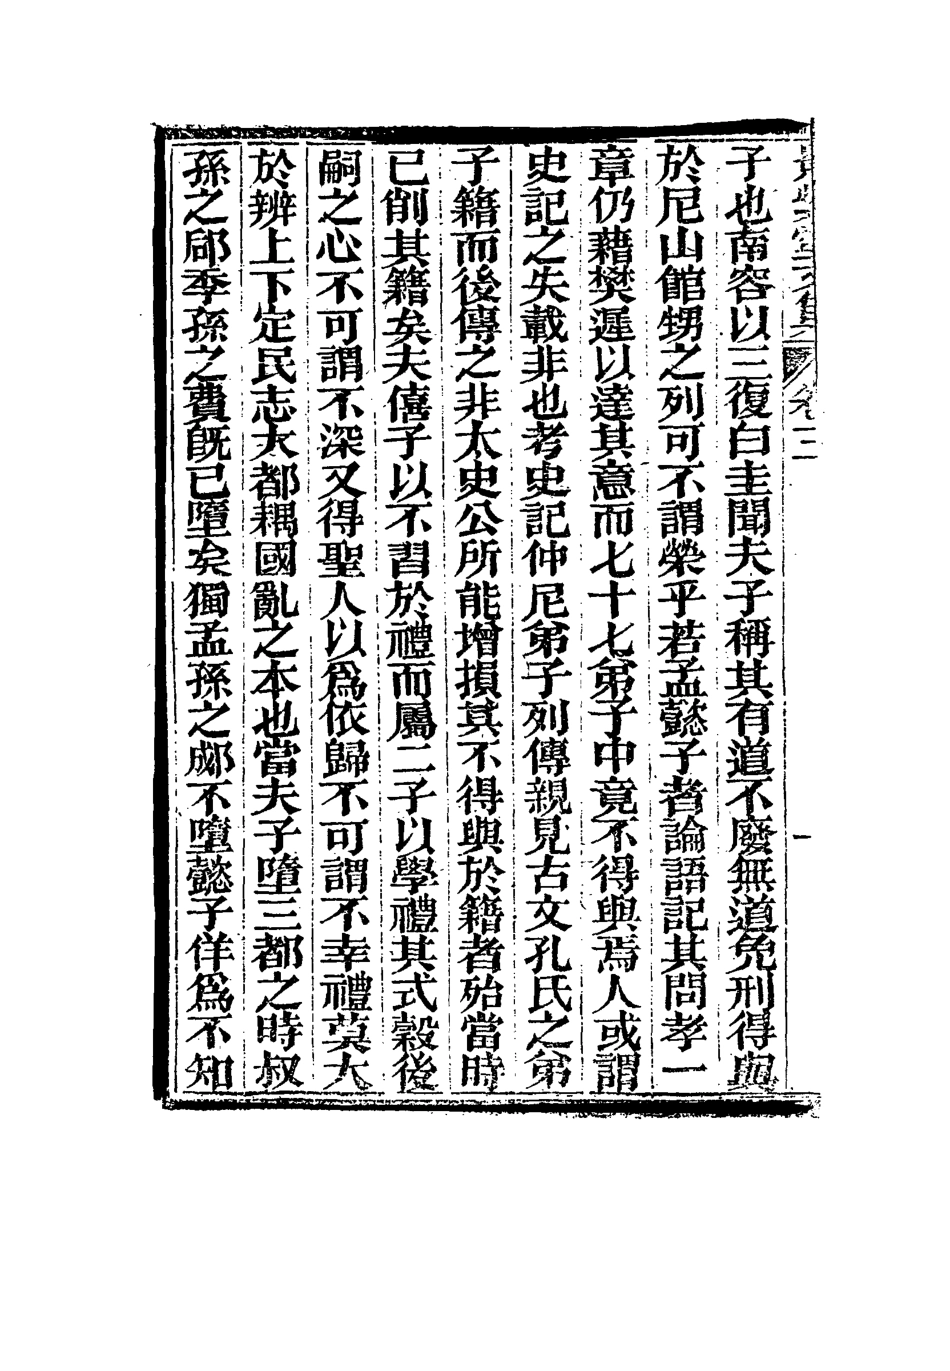 子也南容以三復白圭聞夫子稱其有道不廢無道免刑得與
於尼山館甥之列可不謂榮乎若孟懿子者論語記其問孝一
章仍藉樊遲以達其意而七十七弟子中竟不得與焉人或謂
史記之失載非也考史記仲尼弟子列傳親見古文孔氏之弟
子籍而後傳之非太史公所能增損其不得與於籍者殆當時
已削其籍矣夫僖子以不習於禮而屬二子以學禮其式穀後
嗣之心不可謂不深又得聖人以爲依歸不可謂不幸禮莫大
於辨上下定民志大都耦國亂之本也當夫子墮三都之時叔
孫之郈季孫之費旣已墮矣獨孟孫之郕不墮懿子佯爲不知